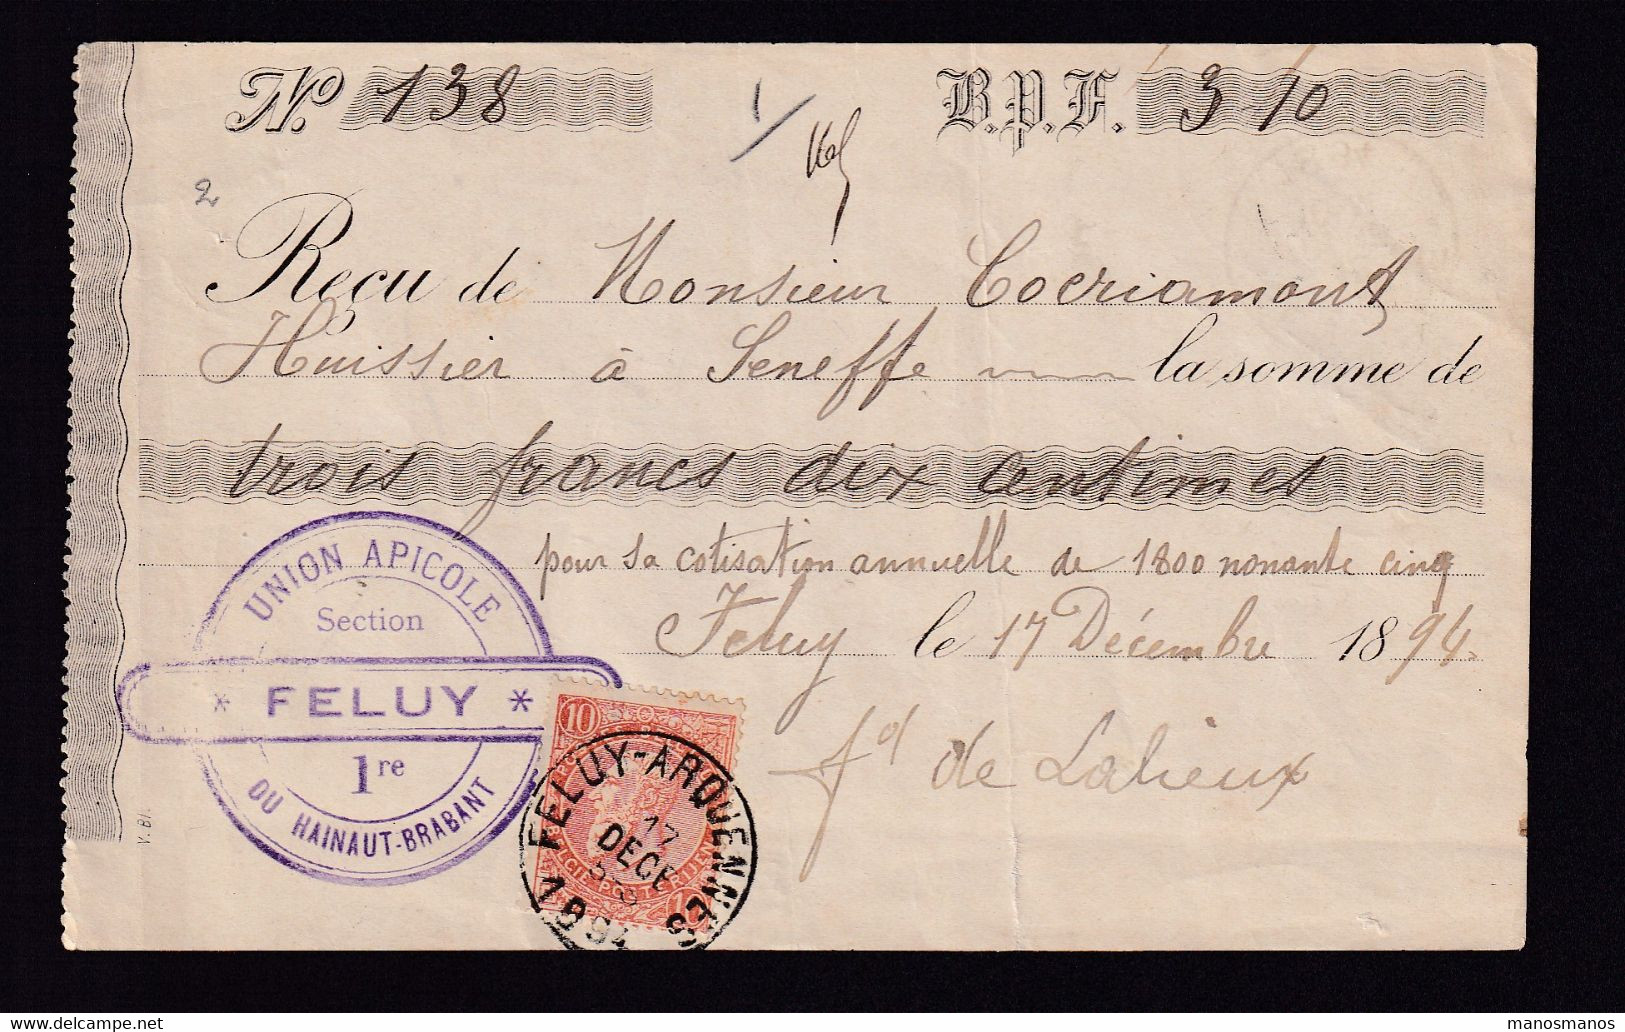 No. 138
B.P.F. 3 10
2
Reçu de Monsieur Coeriamont
Huissier à Seneffe la somme de
trois francs dix centimes
pour sa cotisation annuelle de 1800 nonante cinq
Feluy le 17 Décembre 1894.
fd de Lalieux
UNION APICOLE
Section
* FELUY *
1re
DU HAINAUT-BRABANT
V. BI.
10
FELUY-ARQUENNES
17
DECE
1894
BELGIE POSTERIJEN
10
manosmanos